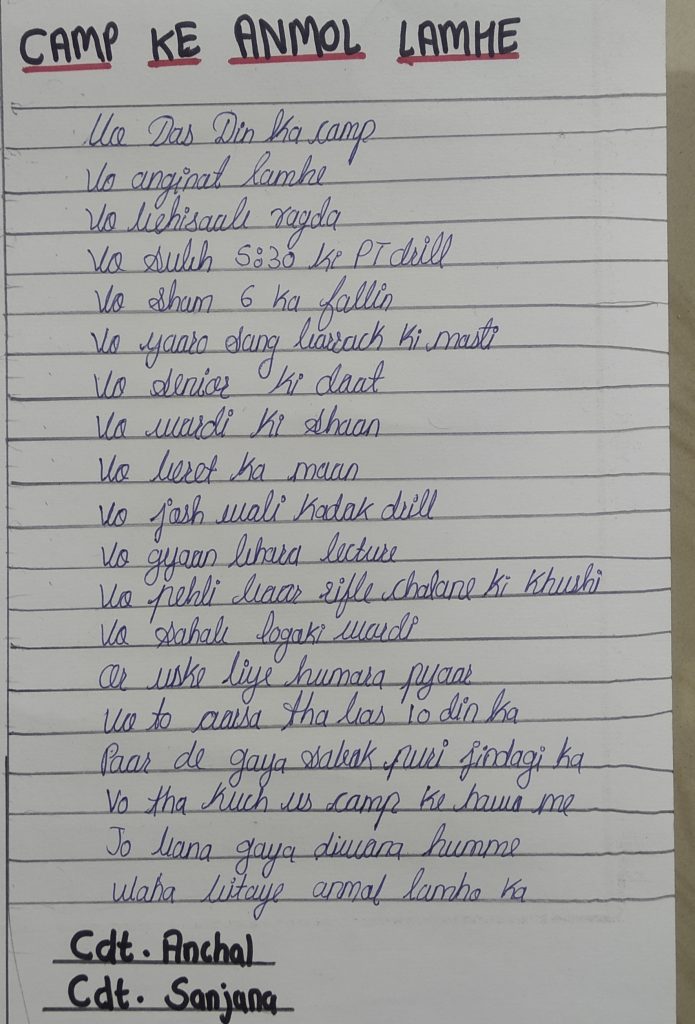 CAMP KE ANMOL LAMHE
Vo Das Din Ka camp
Vo anginat lamhe
Vo behisaab ragda
Vo subh 5:30 ki PT drill
Vo sham 6 ka fallin
Vo yaaro sang barrack ki masti
Vo senior ki daat
Vo wardi ki shaan
Vo beret ka maan
Vo josh wali kadak drill
Vo gyaan bhara lecture
Vo pehli baar rifle chalane ki khushi
Vo sahab logaki wardi
Or uske liye humara pyaar
Vo to aarsa tha bas 10 din ka
Paar de gaya sabak puri jindagi ka
Vo tha kuch us camp ke hawa me
Jo bana gaya diwana humme
Waha bitaye anmol lamho ka
Cdt. Anchal
Cdt. Sanjana